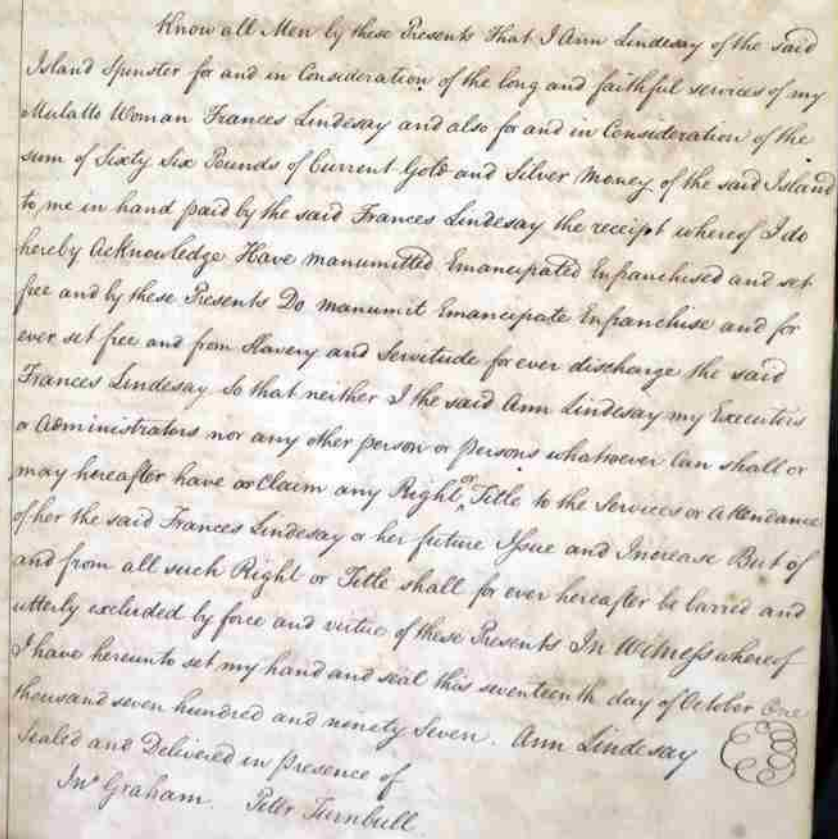 Know all Men by these Presents That I Ann Lindesay of the said
Island Spinster for and in Consideration of the long and faithful services of my
Mulatto Woman Frances Lindesay and also for and in Consideration of the
sum of Sixty Six Pounds of Current Gold and Silver Money of the said Island
to me in hand paid by the said Frances Lindesay the receipt whereof I do
hereby Acknowledge Have manumitted Emancipated Enfranchised and set
free and by these Presents Do manumit Emancipate Enfranchise and for
ever set free and from Slavery and Servitude for ever discharge the said
Frances Lindesay So that neither I the said Ann Lindesay my Executors
or Administrators nor any other person or persons whatsoever Can shall or
may hereafter have or Claim any Right or Title to the Services or Attendance
of her the said Frances Lindesay or her future Issue and Increase But of
and from all such Right or Title shall for ever hereafter be barred and
utterly excluded by force and virtue of these Presents In Witness whereof
I have hereunto set my hand and seal this seventeenth day of October One
thousand seven hundred and ninety Seven. Ann Lindesay
Sealed and Delivered in presence of
Jno Graham. Peter Turnbull